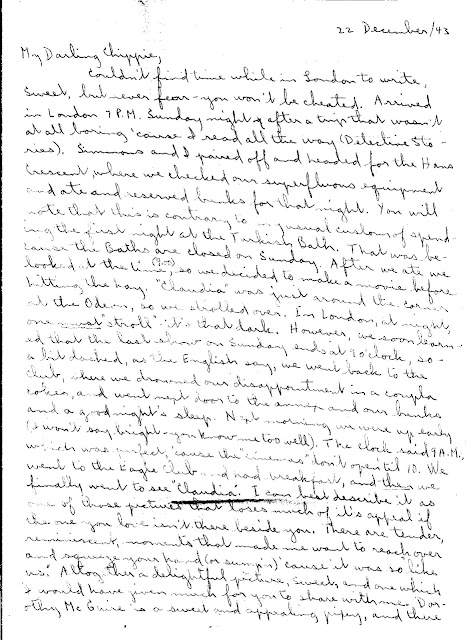 22 December/43
My Darling Chippie,
Couldn't find time while in London to write,
sweet, but never fear - you won't be cheated. Arrived
in London 7 P.M. Sunday night after a trip that wasn't
at all boring 'cause I read all the way (Detective Sto-
ries). Simmons and I paired off and headed for the Hans
Crescent, where we checked our superfluous equipment
and ate and reserved bunks for that night. You will
note that this is contrary to usual custom of spend-
ing the first night at the Turkish Bath. That was be-
cause the Baths are closed on Sunday. After we ate we
looked at the time, (7:00) so we decided to make a movie before
hitting the hay. "Claudia" was just around the corner
at the Odeon, so we strolled over. In London, at night,
one must "stroll" it's that dark. However, we soon learn-
ed that the last show on Sunday ends at 9 o'clock, so -
a bit dashed, as the English say, we went back to the
club, where we drowned our disappointment in a coupla
cokes, and went next door to the annex and our bunks
and a good night's sleep. Next morning we were up early
(I won't say bright - you know me too well). The clock said 9 A.M.,
which was perfect, 'cause the "cinemas" don't open til 10. We
went to the Eagle Club and had breakfast, and then we
finally went to see "Claudia". I can best describe it as
one of those pictures that loses much of it's appeal if
the one you love isn't there beside you. There are tender,
reminiscent, moments that made me want to reach over
and squeeze your hand (or sumpin') 'cause it was so like
us. Altogether a delightful picture, sweet, and one which
I would have given much for you to share with me. Dor-
othy McGuire is a sweet and appealing pipey, and there